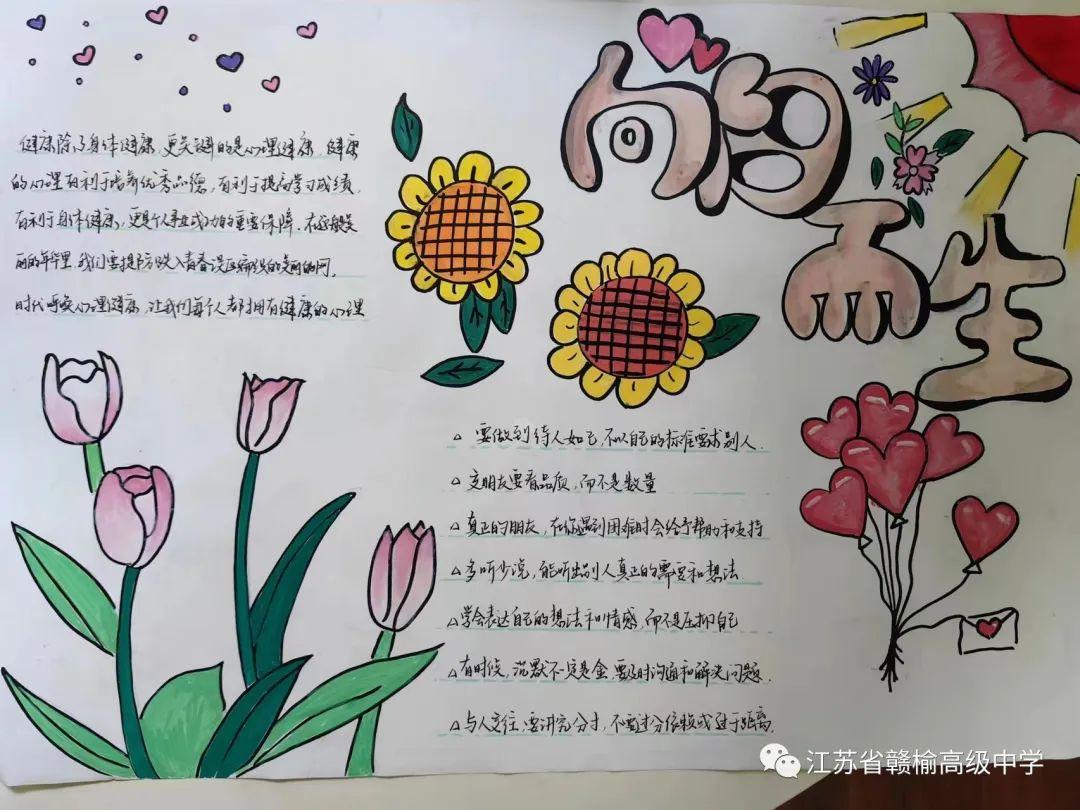 向阳而生
健康除了身体健康，更关键的是心理健康，健康
的心理有利于培养优秀品德，有利于提高学习成绩，
有利于身体健康，更是个人事业成功的重要保障。在
丽的年华里，我们要提防跌入青春误区编织的美丽的网。
时代呼唤心理健康，让我们每个人都拥有健康的心理
△ 要做到待人如己，不以自己的标准要求别人。
△ 交朋友要看品质，而不是数量
△ 真正的朋友，在你遇到困难时会给予帮助和支持
△ 多听少说，能听出别人真正的需要和想法
△ 学会表达自己的想法和情感，而不是压抑自己
△ 有时候，沉默不一定是金，要及时沟通和解决问题。
△ 与人交往，要讲究分寸，不要过分依赖或过于距离。
江苏省赣榆高级中学